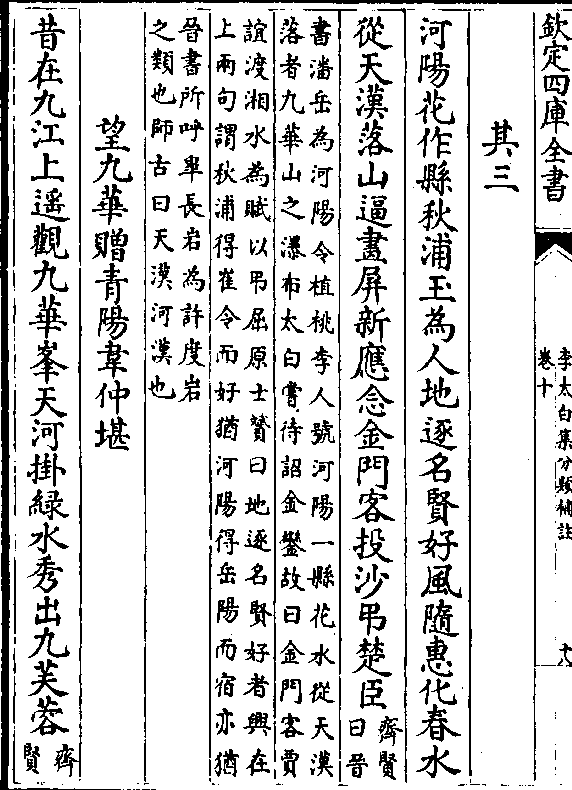 欽定四庫全書
李太白集分類補註
卷十
十八
其三
河陽花作縣秋浦玉為人地逐名賢好風隨惠化春水
從天漢落山逼畫屏新應念金門客投沙弔楚臣
齊賢
曰晉
書潘岳為河陽令植桃李人號河陽一縣花水從天漢
落者九華山之瀑布太白嘗待詔金鑾故曰金門客賈
誼渡湘水為賦以弔屈原士贇曰地逐名賢好者興在
上兩句謂秋浦得崔令而好猶河陽得岳陽而宿亦猶
晉書所呼長岩為許度岩
之類也師古曰天漢河漢也
望九華贈青陽韋仲堪
昔在九江上遥觀九華峯天河掛緑水秀出九芙蓉
齊
賢